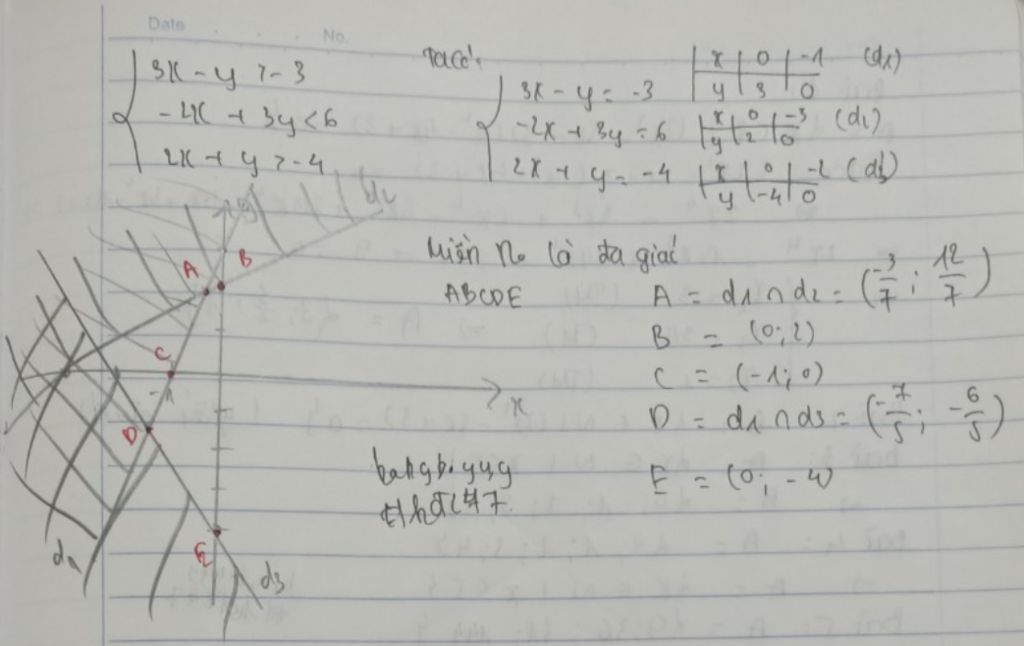 Date
No.
3x - y > -3
-2x + 3y < 6
2x + y > -4
Ta có:
3x - y = -3
-2x + 3y = 6
2x + y = -4
x 0 -1 (d1)
y 3 0
x 0 -3 (d2)
y 2 0
x 0 -2 (d3)
y -4 0
y
d2
A
B
C
-1
x
D
E
d1
d3
Miền No là đa giác
ABCDE
A = d1 ∩ d2 = (-3/7; 12/7)
B = (0; 2)
C = (-1; 0)
D = d1 ∩ d3 = (-7/5; -6/5)
E = (0; -4)